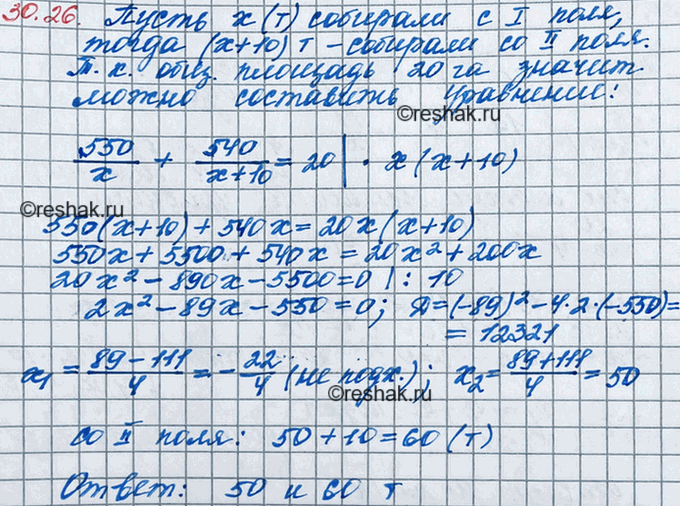 30.26. Пусть x (т) собирали с I поля,
тогда (x+10) т - собирали со II поля.
Т.к. общ. площадь 20 га значит
можно составить уравнение:
©reshak.ru
550/x + 540/(x+10) = 20 | · x (x+10)
©reshak.ru
550(x+10) + 540x = 20x (x+10)
550x + 5500 + 540x = 20x² + 200x
20x² - 890x - 5500 = 0 | : 10
2x² - 89x - 550 = 0; Д = (-89)² - 4·2·(-550) =
= 12321
x₁ = (89 - 111)/4 = - 22/4 (не подх.); x₂ = (89+111)/4 = 50
©reshak.ru
со II поля: 50 + 10 = 60 (т)
Ответ: 50 и 60 т